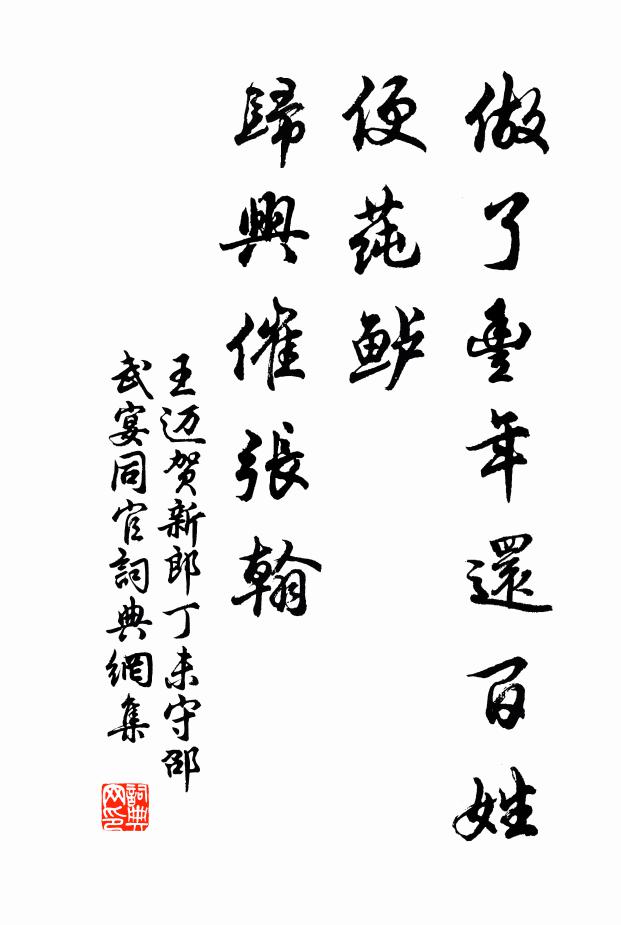 做了豐年還百姓
便莼鲈
歸興催張翰
王迈贺新郎丁未守邵
武宴同官詞典網集
詞典网印